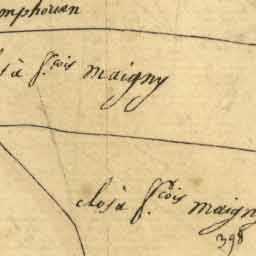 mphorien
s à f.cois maigny
clos à f.cois maigny
398